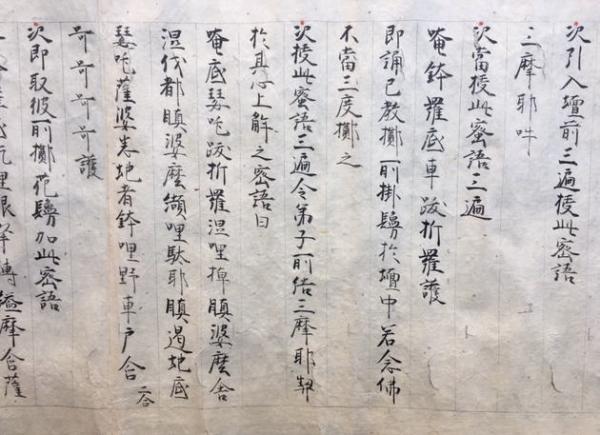 次引入壇前三遍授此密語
三摩耶吽
次當授此蜜語三遍
唵鉢羅底車跋折羅護
即誦已教擲前掛鬘於壇中若念佛
不當三度擲之
次授此蜜語三遍令弟子前結三摩耶契
於其心上解之密語曰
唵底瑟吒跋折羅涅哩捭瞋婆麼舍
涅伐都瞋婆麼纈哩馱耶瞋遏地底
瑟吒薩婆悉地者鉢哩野車戶合二合
呵呵呵呵護
次即取彼前擲花鬘加此密語